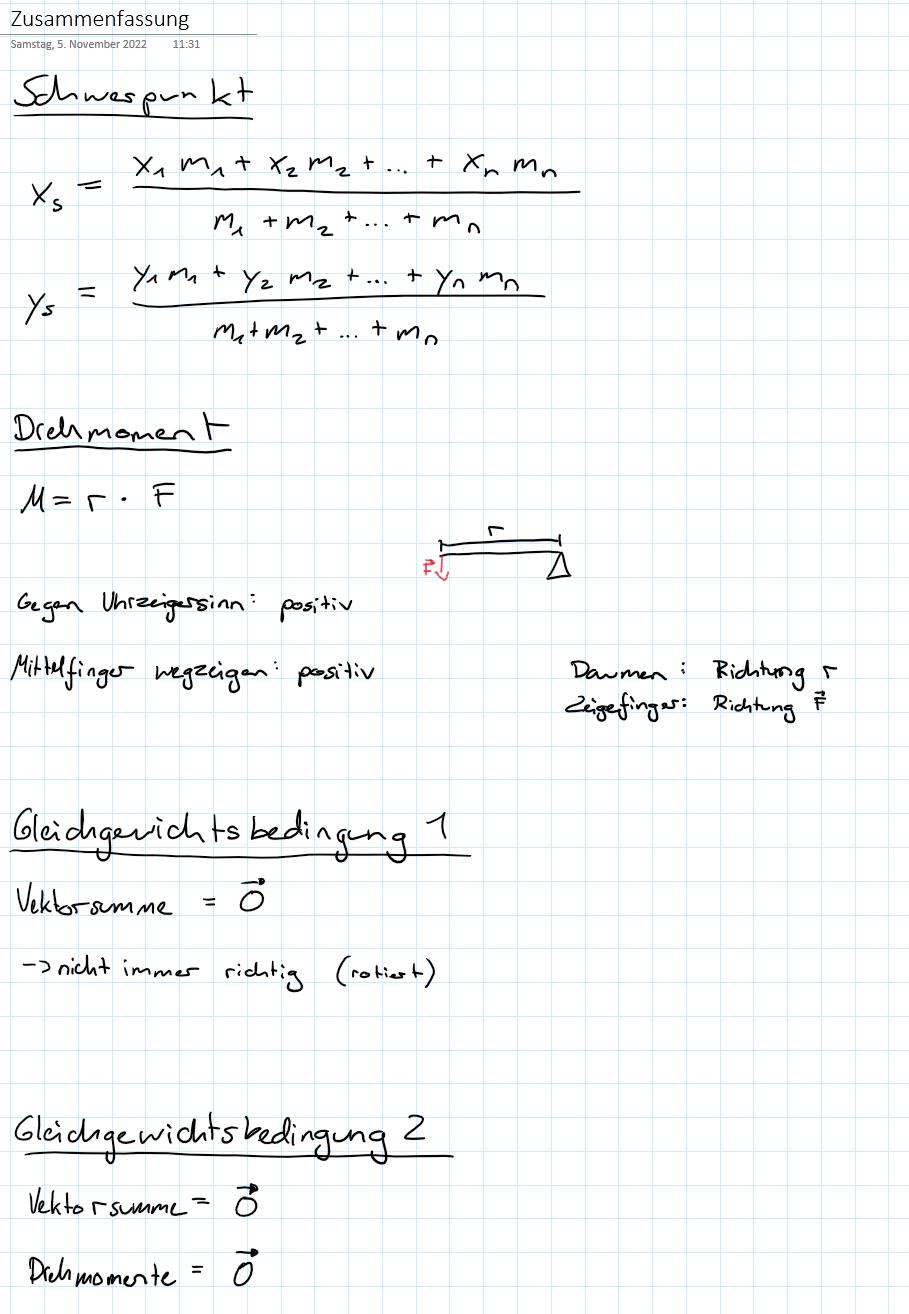 Zusammenfassung
Samstag, 5. November 2022 11:31
Schwerpunkt
x₁ m₁ + x₂ m₂ + ... + xₙ mₙ
xₛ =
m₁ + m₂ + ... + mₙ
y₁ m₁ + y₂ m₂ + ... + yₙ mₙ
yₛ =
m₁ + m₂ + ... + mₙ
Drehmoment
M = r · F
r
F⃗
Gegen Uhrzeigersinn: positiv
Mittelfinger wegzeigen: positiv
Daumen: Richtung r
Zeigefinger: Richtung F⃗
Gleichgewichtsbedingung 1
Vektorsumme = 0⃗
-> nicht immer richtig (rotiert)
Gleichgewichtsbedingung 2
Vektorsumme = 0⃗
Drehmomente = 0⃗